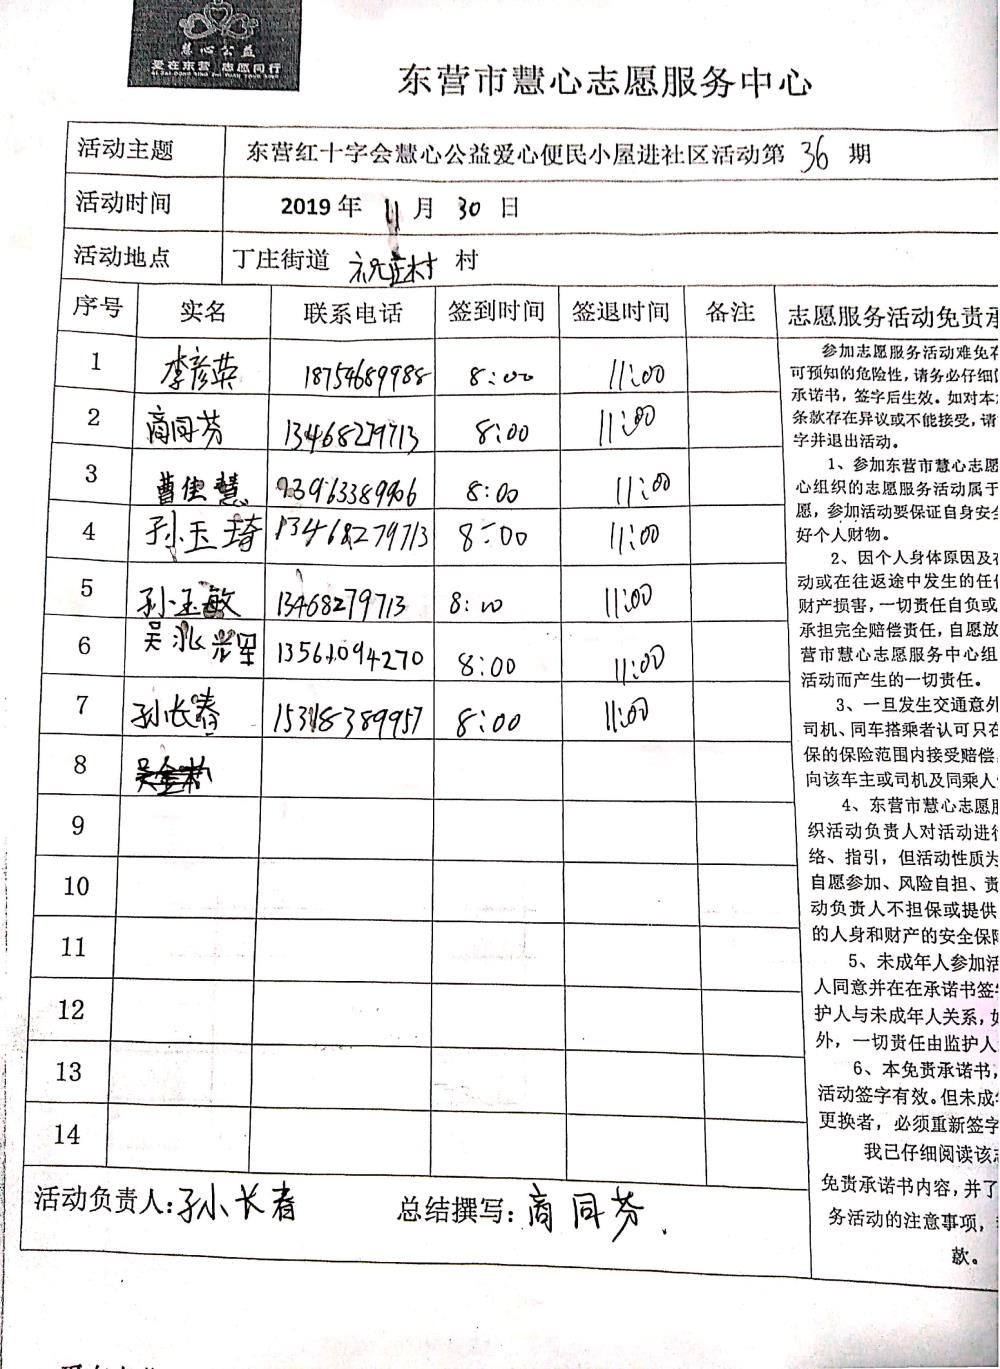 慧心公益
爱在东营 志愿同行
AI ZAI DONG YING ZHI YUAN TONG XING
东营市慧心志愿服务中心
活动主题 东营红十字会慧心公益爱心便民小屋进社区活动第 36 期
活动时间 2019 年 11 月 30 日
活动地点 丁庄街道 祝庄村 村
序号 实名 联系电话 签到时间 签退时间 备注
1 李彦荣 18754689988 8:00 11:00
2 商同芬 13468279713 8:00 11:00
3 曹佳慧 13963389906 8:00 11:00
4 孙玉琦 13468279713 8:00 11:00
5 孙玉敏 13468279713 8:00 11:00
6 吴兆 13561094270 8:00 11:00
7 孙长春 15318389957 8:00 11:00
8
9
10
11
12
13
14
活动负责人:孙长春 总结撰写:商同芬.
志愿服务活动免责承
参加志愿服务活动难免存
可预知的危险性,请务必仔细
承诺书,签字后生效。如对本
条款存在异议或不能接受,请
字并退出活动。
1、参加东营市慧心志愿
心组织的志愿服务活动属于
愿,参加活动要保证自身安全
好个人财物。
2、因个人身体原因及在
动或在往返途中发生的任何
财产损害,一切责任自负或
承担完全赔偿责任,自愿放
营市慧心志愿服务中心组
活动而产生的一切责任。
3、一旦发生交通意外
司机、同车搭乘者认可只在
保的保险范围内接受赔偿,
向该车主或司机及同乘人
4、东营市慧心志愿服
织活动负责人对活动进行
络、指引,但活动性质为
自愿参加、风险自担、责
动负责人不担保或提供
的人身和财产的安全保障
5、未成年人参加活
人同意并在在承诺书签字
护人与未成年人关系,如
外,一切责任由监护人
6、本免责承诺书,
活动签字有效。但未成
更换者,必须重新签字
我已仔细阅读该志
免责承诺书内容,并了
务活动的注意事项,
款。